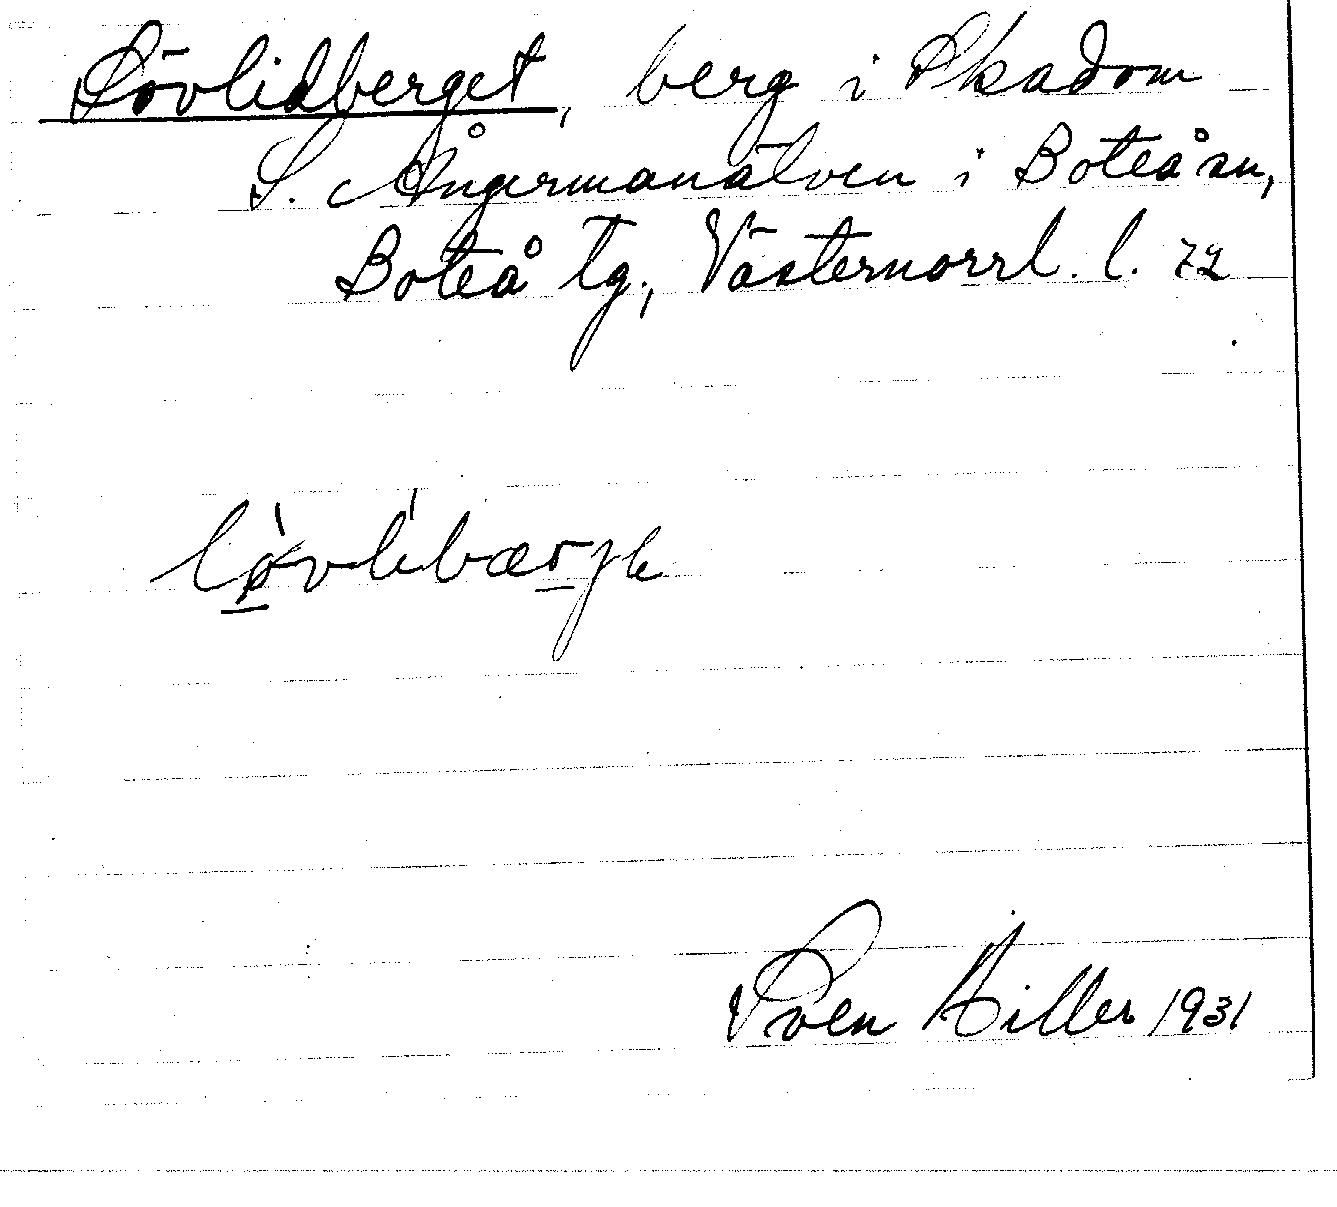 Lövlidberget, berg i Skadom
S. Ångermanälven i Boteå sn,
Boteå tg., Västernorrl. l. 72
Sven Hiller 1931